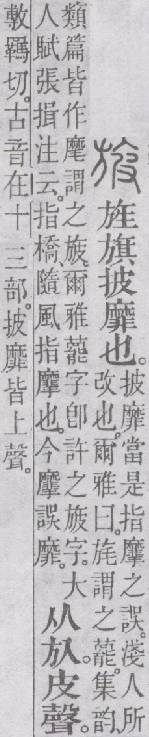 旇
旌旗披靡也。
披靡當是指摩之誤。淺人所
改也。爾雅曰。旄謂之藣。集韵、
類篇皆作麾謂之旇。爾雅藣字卽許之旇字。大
人賦張揖注云。指橋、隨風指摩也。今摩誤靡。
从㫃皮聲。
敷羈切。古音在十三部。披靡皆上聲。